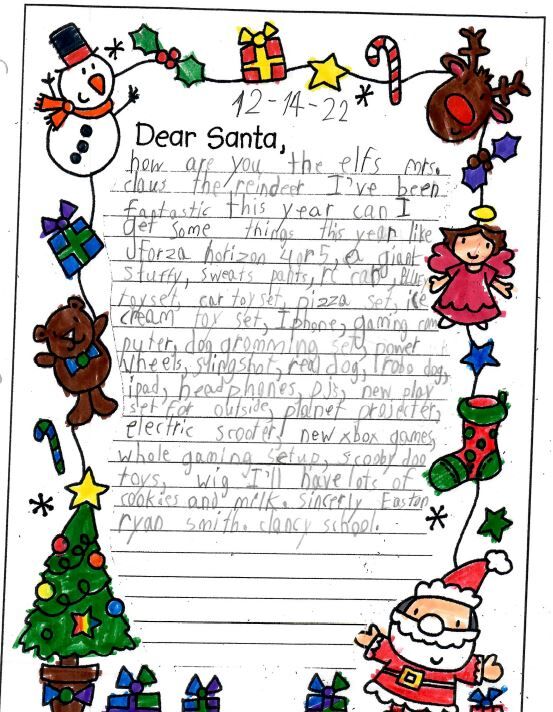 12-14-22
Dear Santa,
how are you the elfs mrs.
claus the reindeer I've been
fantastic this year can I
get some things this year like
forza horizon 4 or 5, a giant
stuffy, sweats pants, rc car, Bluey
toy set, car toy set, pizza set, ice
cream toy set, Iphone, gaming com
puter, dog gromming set, power
wheels, slingshot, real dog, robo dog,
ipad, headphones, pjs, new play
set for outside, planet projecter,
electric scooter, new xbox games,
whole gaming setup, scooby doo
toys, wig I'll have lots of
cookies and milk. sincerly Easton
ryan smith. clancy school.